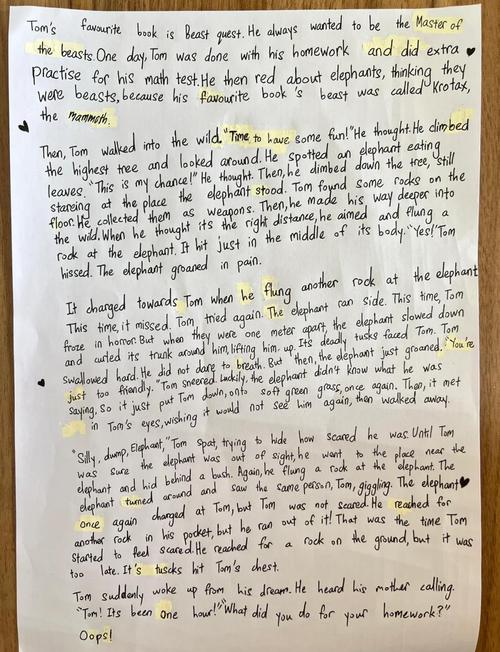 Tom's favourite book is Beast quest. He always wanted to be the Master of
the beasts. One day, Tom was done with his homework and did extra
practise for his math test. He then red about elephants, thinking they
were beasts, because his favourite book's beast was called Krotax,
the mammoth.
Then, Tom walked into the wild. "Time to have some fun!" He thought. He climbed
the highest tree and looked around. He spotted an elephant eating
leaves. "This is my chance!" He thought. Then, he climbed down the tree, still
stareing at the place the elephant stood. Tom found some rocks on the
floor. He collected them as weapons. Then, he made his way deeper into
the wild. When he thought its the right distance, he aimed and flung a
rock at the elephant. It hit just in the middle of its body. "Yes!" Tom
hissed. The elephant groaned in pain.
It charged towards Tom when he flung another rock at the elephant
This time, it missed. Tom tried again. The elephant ran side. This time, Tom
froze in horror. But when they were one meter apart, the elephant slowed down
and curled its trunk around him, lifting him up. Its deadly tusks faced Tom. Tom
swallowed hard. He did not dare to breath. But then, the elephant just groaned. "You're
just too friendly." Tom sneered. Luckily, the elephant didn't know what he was
saying. So it just put Tom down, onto soft green grass, once again. Then, it met
in Tom's eyes, wishing it would not see him again, then walked away.
"Silly, dump, Elephant," Tom spat, trying to hide how scared he was. Until Tom
was sure the elephant was out of sight, he went to the place near the
elephant and hid behind a bush. Again, he flung a rock at the elephant. The
elephant turned around and saw the same person, Tom, giggling. The elephant
once again charged at Tom, but Tom was not scared. He reached for
another rock in his pocket, but he ran out of it! That was the time Tom
started to feel scared. He reached for a rock on the ground, but it was
too late. It's tuscks hit Tom's chest.
Tom suddenly woke up from his dream. He heard his mother calling.
"Tom! Its been One hour!" "What did you do for your homework?"
Oops!